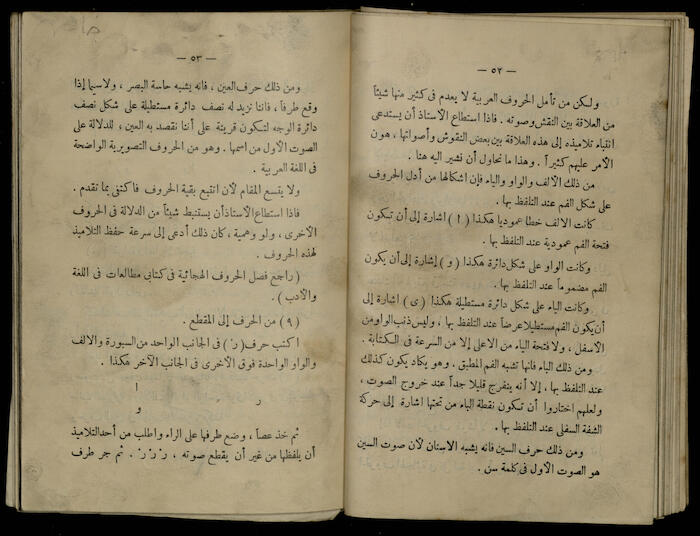 — ٥٢ —
ولكن من تأمل الحروف العربية لا يعدم فى كثير منها شيئاً
من العلاقة بين النقش وصوته . فاذا استطاع الأستاذ أن يستدعى
انتباه تلاميذه إلى هذه العلاقة بين بعض النقوش وأصواتها ، هون
الأمر عليهم كثيراً . وهذا ما نحاول أن نشير اليه هنا .
من ذلك الألف والواو والياء فإن اشكالها من أدل الحروف
على شكل الفم عند التلفظ بها .
كانت الالف خطا عموديا هكذا ( ا ) اشارة إلى أن تكون
فتحة الفم عمودية عند التلفظ بها .
وكانت الواو على شكل دائرة هكذا ( و ) إشارة إلى أن يكون
الفم مضموماً عند التلفظ بها .
وكانت الياء على شكل دائرة مستطيلة هكذا ( ى ) اشارة إلى
أن يكون الفم مستطيلا عرضاً عند التلفظ بها ، وليس ذنب الواو من
الأسفل ، ولا فتحة الياء من الاعلى إلا من السرعة فى الكتابة .
ومن ذلك الباء فانها تشبه الفم المطبق . وهو يكاد يكون كذلك
عند التلفظ بها . إلا أنه ينفرج قليلا جداً عند خروج الصوت ،
ولعلهم اختاروا أن تكون نقطة الباء من تحتها اشارة إلى حركة
الشفة السفلى عند التلفظ بها .
ومن ذلك حرف السين فانه يشبه الاسنان لأن صوت السين
هو الصوت الأول فى كلمة سن .
— ٥٣ —
ومن ذلك حرف العين ، فانه يشبه حاسة البصر ، ولا سيما إذا
وقع طرفاً ، فاننا نزيد له نصف دائرة مستطيلة على شكل نصف
دائرة الوجه لتكون قرينة على أننا نقصد به العين ، للدلالة على
الصوت الأول من اسمها . وهو من الحروف التصويرية الواضحة
فى اللغة العربية .
ولا يتسع المقام لأن انتبع بقية الحروف فاكتفى بما تقدم .
فاذا استطاع الاستاذ أن يستنبط شيئاً من الدلالة فى الحروف
الأخرى ، ولو وهمية ، كان ذلك أدعى إلى سرعة حفظ التلاميذ
لهذه الحروف .
( راجع فصل الحروف الهجائية فى كتابى مطالعات فى اللغة
والأدب ) .
( ٩ ) من الحرف إلى المقطع .
اكتب حرف ( ر ) فى الجانب الواحد من السبورة والالف
والواو الواحدة فوق الأخرى فى الجانب الآخر هكذا .
ا
ر
و
ثم خذ عصاً ، وضع طرفها على الراء واطلب من أحد التلاميذ
أن يلفظها من غير أن يقطع صوته ، ر ر ر . ثم جر طرف